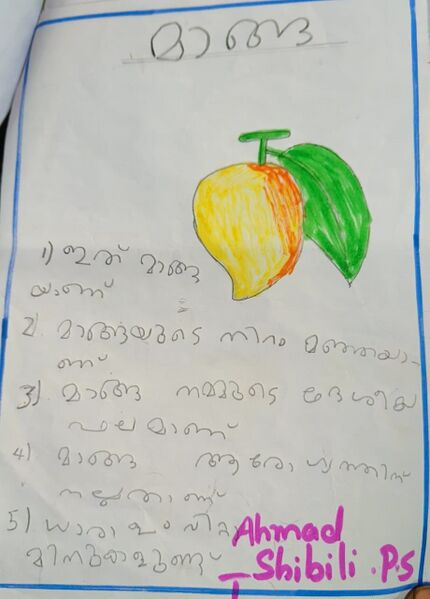 മാങ്ങ
1) ഇത് മാങ്ങ
യാണ്
2. മാങ്ങയുടെ നിറം മഞ്ഞയാ-
ണ്
3). മാങ്ങ നമ്മുടെ ദേശീയ
ഫലമാണ്
4) മാങ്ങ ആരോഗ്യത്തിന്
നല്ലതാണ്
5) ധാരാളം വിറ്റ
മിനുകളുണ്ട്
Ahmad
Shibili .P.S
I